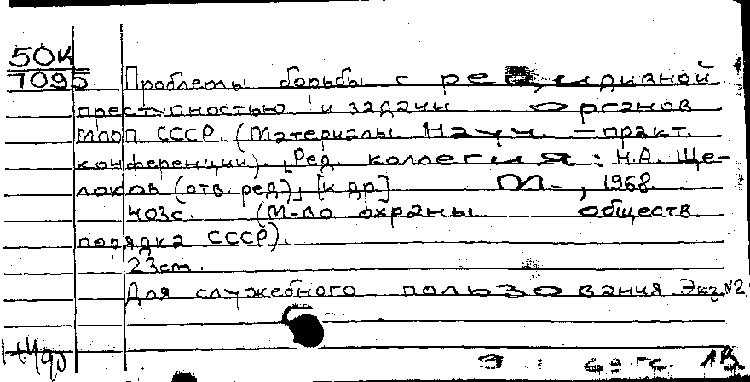 50К
1095
Проблемы борьбы с рецидивной
преступностью и задачи органов
МООП СССР. (Материалы науч.-практ.
конференции). [Ред. коллегия: Н.А. Ще-
локов (отв. ред), [и др]
М., 1968
403с. (М-во охраны обществ.
порядка СССР).
23см.
Для служебного пользования Экз№2
1В